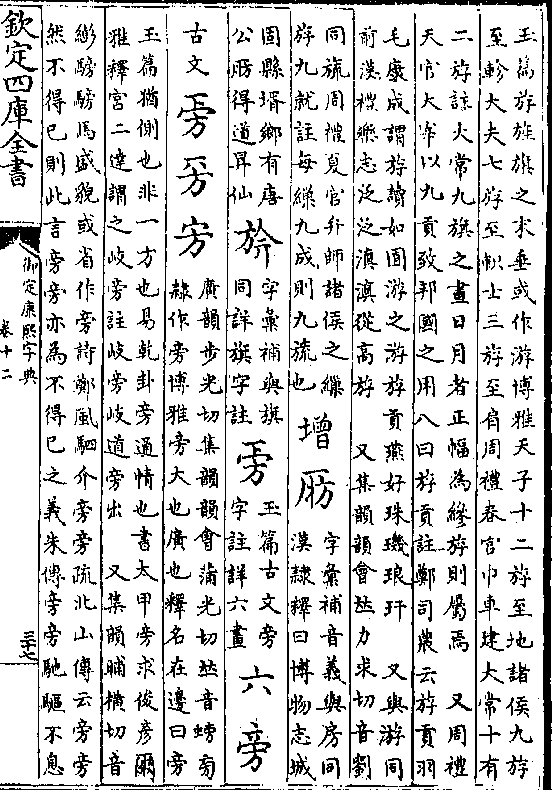 玉篇斿旌旗之末垂或作游博雅天子十二斿至地諸侯九斿
至軫大夫七斿至軹士三斿至肩周禮春官巾車建大常十有
二斿註大常九旗之畫日月者正幅為縿斿則屬焉 又周禮
天官大宰以九貢致邦國之用八曰斿貢註鄭司農云斿貢羽
毛康成謂斿讀如囿游之游斿貢燕好珠璣琅玕 又與游同
前漢禮樂志泛泛滇滇從高斿 又集韻韻會𠀤力求切音劉
同旒周禮夏官弁師諸侯之繅
斿九就註每繅九成則九旒也
增
字彙補音義與房同
漢隸釋曰博物志城
固縣壻鄉有唐
公得道昇仙
字彙補與旗
同詳旗字註
玉篇古文旁
字註詳六畫
六 旁
古文
廣韻步光切集韻韻會蒲光切𠀤音螃旁
隸作旁博雅旁大也廣也釋名在邊曰旁
玉篇猶側也非一方也易乾卦旁通情也書太甲旁求俊彥爾
雅釋宮二達謂之岐旁註岐旁岐道旁出 又集韻晡橫切音
綳騯騯馬盛貌或省作旁詩鄭風駟介旁旁疏北山傳云旁旁
然不得已則此言旁旁亦為不得已之義朱傳旁旁馳驅不息
欽定四庫全書
御定康熙字典
卷十二
三十七